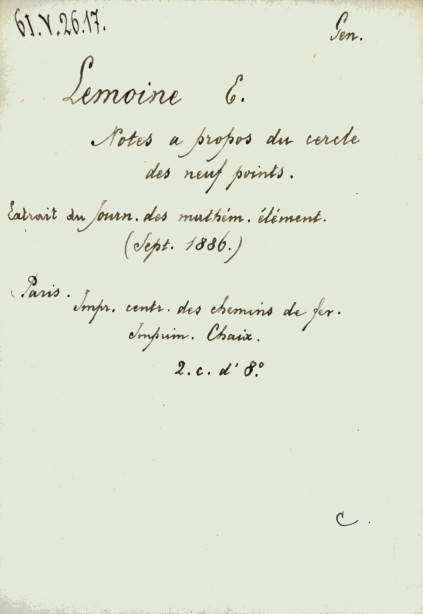 61.V.26.17.
Gen.
Lemoine E.
Notes a propos du cercle
des neuf points.
Extrait du Journ. des mathém. élément.
(Sept. 1886.)
Paris.
Impr. centr. des chemins de fer.
Imprim. Chaix.
2. c. d' 8.º
C.